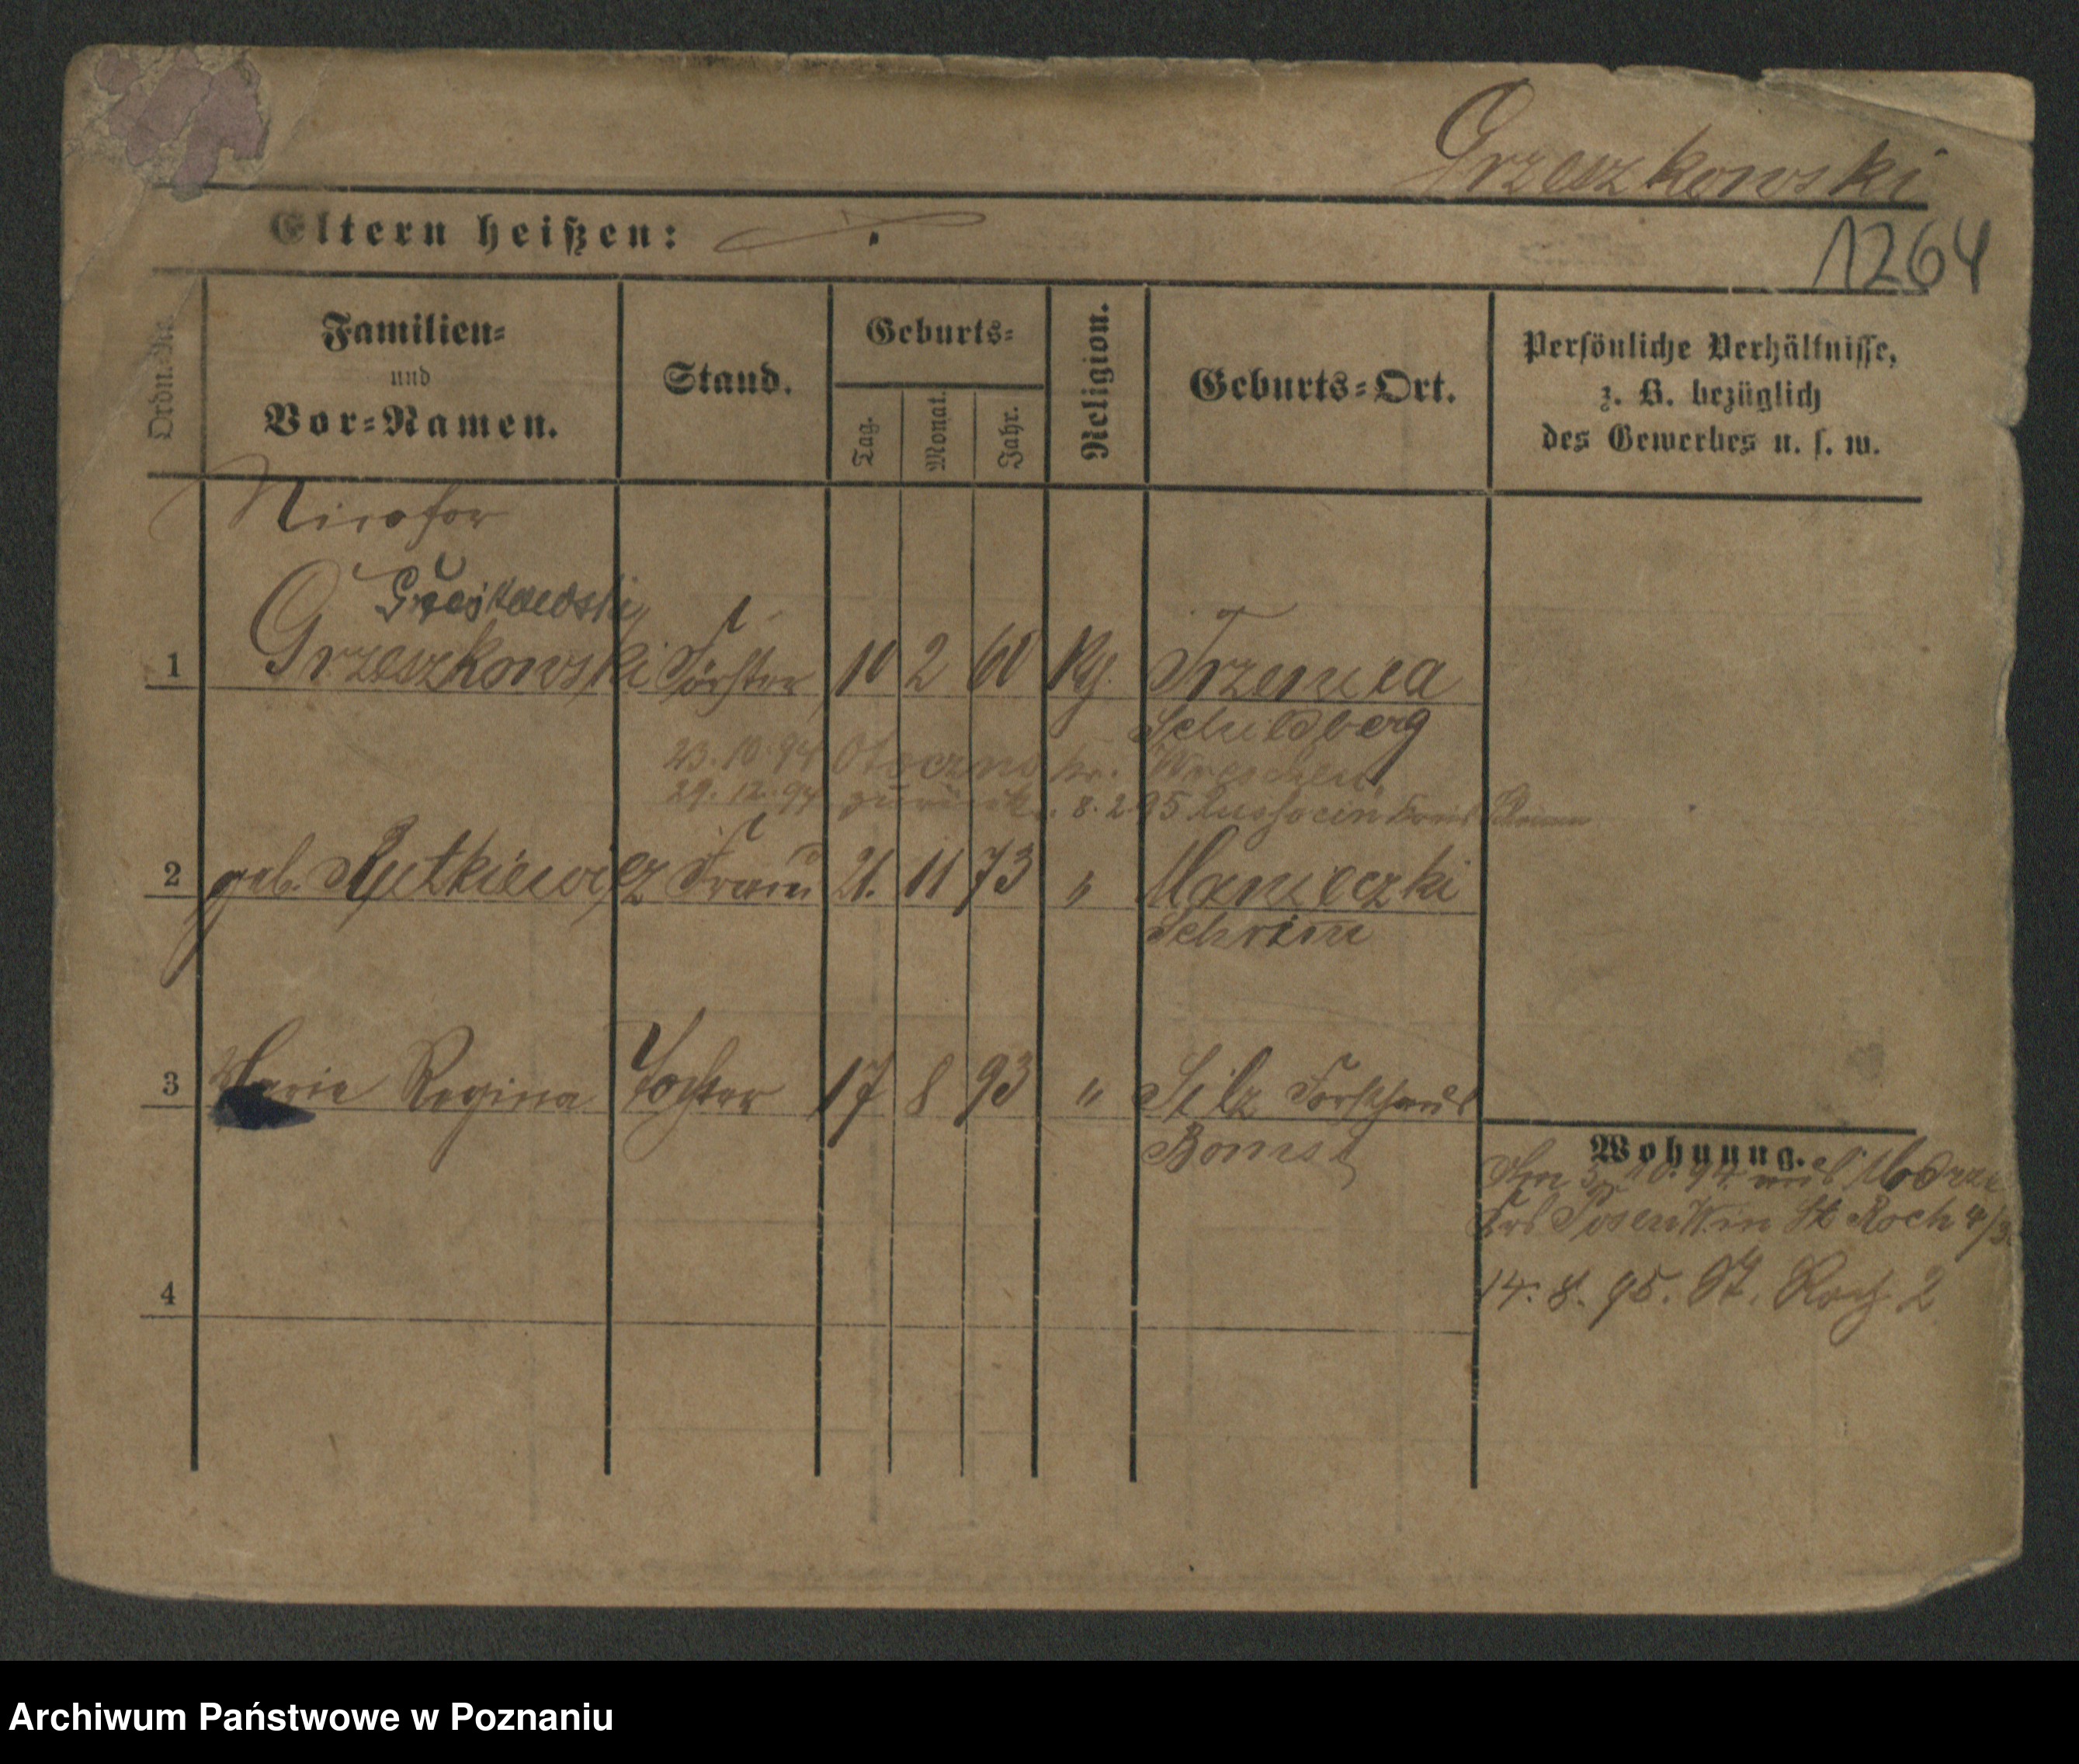 Grzeszkowski
Eltern heißen:
1264
Ordn.-Nr.
Familien-
und
Vor-Namen.
Stand.
Geburts-
Tag.
Monat.
Jahr.
Religion.
Geburts-Ort.
Persönliche Verhältnisse,
z. B. bezüglich
des Gewerbes u. s. w.
1 Grzeszkowski Förster 10 2 60 Kg.
Schildberg
23.10.94 Otoczno Kr. Wreschen
29.12.94 zurück. 8.2.95
2 geb. Rutkiewicz Frau 21. 11 73 " Manieczki
Schrimm
3 Maria Regina Tochter 17 8 93 " Silz Forsthaus
Bomst
Wohnung.
10.94
Posen W in St Roch 4/5
14. 8. 95. St. Roch 2
4
Archiwum Państwowe w Poznaniu